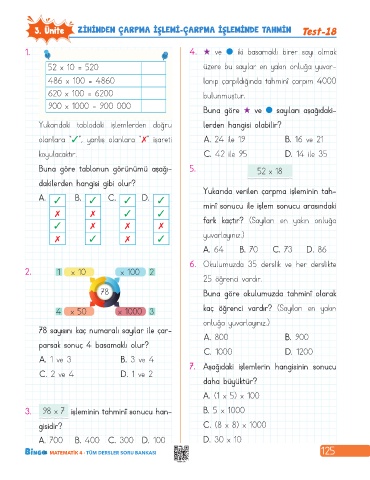 3. Ünite
ZİHİNDEN ÇARPMA İŞLEMİ-ÇARPMA İŞLEMİNDE TAHMİN
Test-18
1.
52 x 10 = 520
486 x 100 = 4860
620 x 100 = 6200
900 x 1000 = 900 000
Yukarıdaki tablodaki işlemlerden doğru
olanlara "✓", yanlış olanlara "✗" işareti
koyulacaktır.
Buna göre tablonun görünümü aşağı-
dakilerden hangisi gibi olur?
A. ✓ B. ✓ C. ✓ D. ✓
✗ ✗ ✓ ✓
✓ ✗ ✗ ✗
✗ ✓ ✗ ✓
2.
1 x 10 x 100 2
78
4 x 50 x 1000 3
78 sayısını kaç numaralı sayılar ile çar-
parsak sonuç 4 basamaklı olur?
A. 1 ve 3 B. 3 ve 4
C. 2 ve 4 D. 1 ve 2
3. 98 x 7 işleminin tahminî sonucu han-
gisidir?
A. 700 B. 400 C. 300 D. 100
4. ★ ve ● iki basamaklı birer sayı olmak
üzere bu sayılar en yakın onluğa yuvar-
lanıp çarpıldığında tahminî çarpım 4000
bulunmuştur.
Buna göre ★ ve ● sayıları aşağıdaki-
lerden hangisi olabilir?
A. 24 ile 19 B. 16 ve 21
C. 42 ile 95 D. 14 ile 35
5.
52 x 18
Yukarıda verilen çarpma işleminin tah-
minî sonucu ile işlem sonucu arasındaki
fark kaçtır? (Sayıları en yakın onluğa
yuvarlayınız.)
A. 64 B. 70 C. 73 D. 86
6. Okulumuzda 35 derslik ve her derslikte
25 öğrenci vardır.
Buna göre okulumuzda tahminî olarak
kaç öğrenci vardır? (Sayıları en yakın
onluğa yuvarlayınız.)
A. 800 B. 900
C. 1000 D. 1200
7. Aşağıdaki işlemlerin hangisinin sonucu
daha büyüktür?
A. (1 x 5) x 100
B. 5 x 1000
C. (8 x 8) x 1000
D. 30 x 10
BİNGO MATEMATİK 4 - TÜM DERSLER SORU BANKASI
125